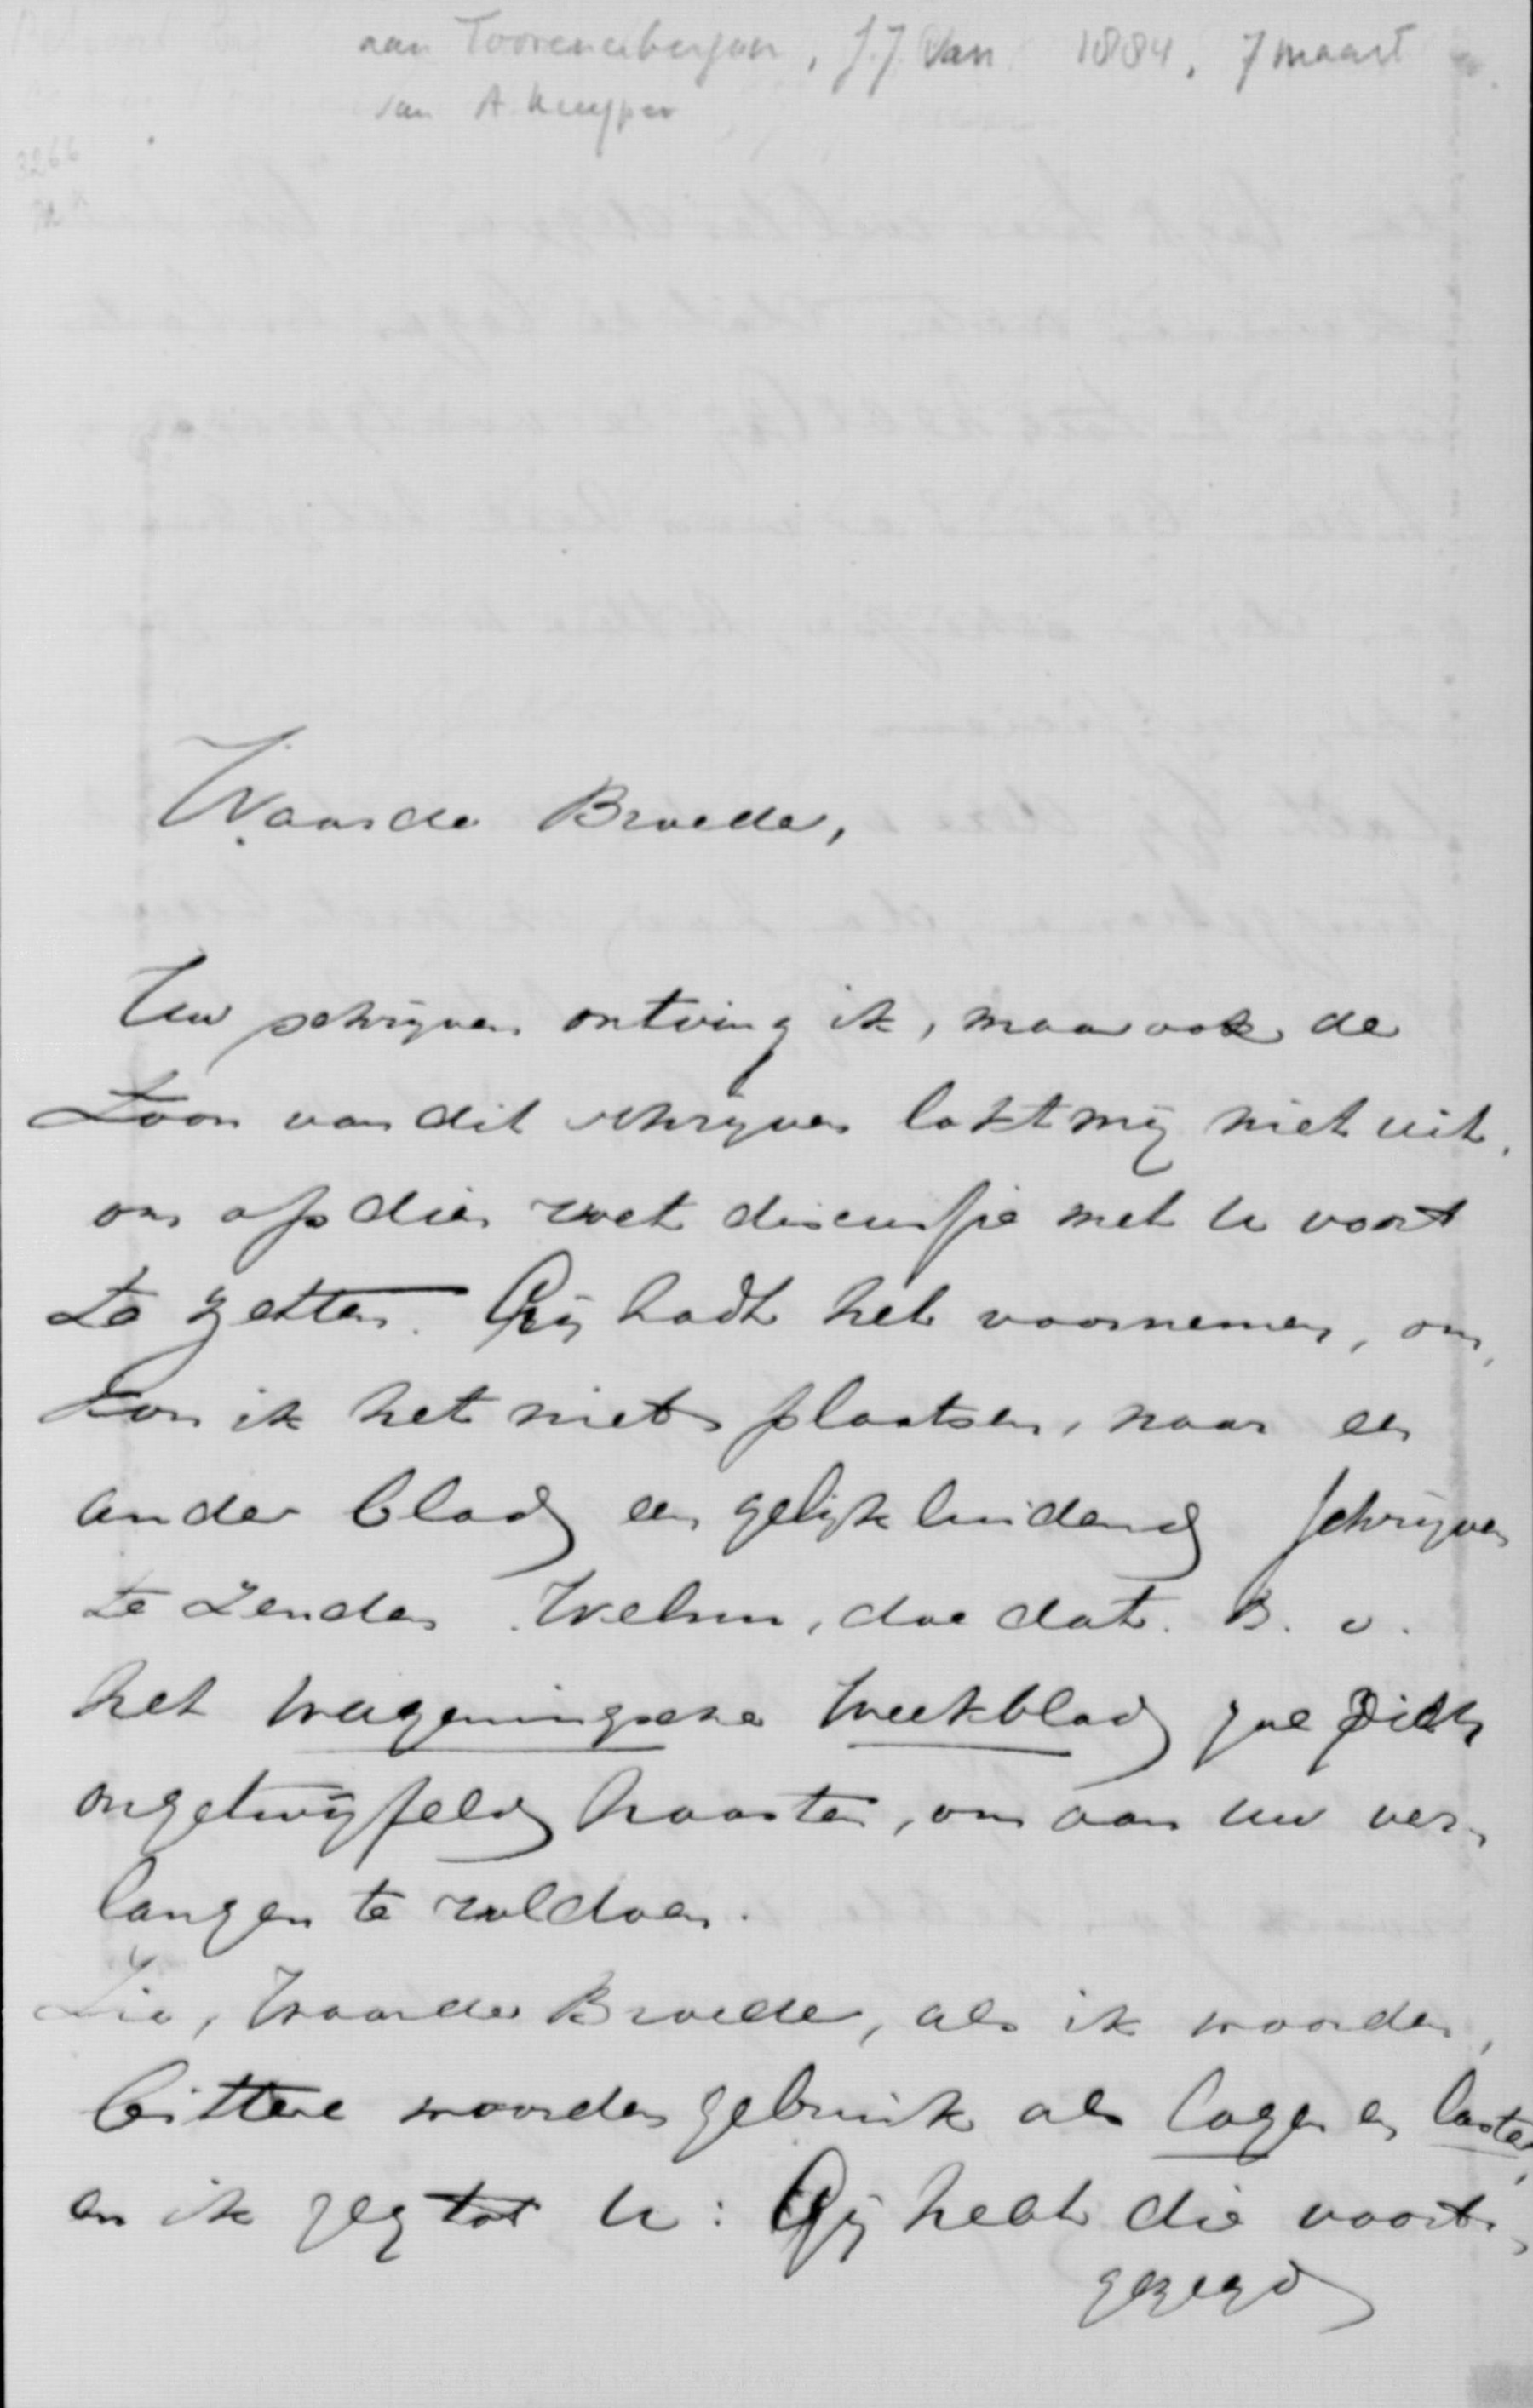 aan Toorenenbergen, J.J. Van 1884, 7 maart
van A. Kuyper
3266
Waarde Broeder,
Uw schrijven ontving ik, maar ook de
toon van dit schrijven lokt mij niet uit,
om op dien voet discussie met U voort
te zetten. Gij hadt het voornemen, om,
kon ik het niet plaatsen, naar een
ander blad een gelijkluidend schrijven
te zenden. Welnu, doe dat. B. v.
het Wageningsche Weekblad zal zich
ongetwijfeld haasten, om aan uw ver-
langen te voldoen.
Zie, Waarde Broeder, als ik woorden,
bittere woorden gebruik als logen en laster,
en ik zeg tot U: Gij hebt die voort-
gezegd